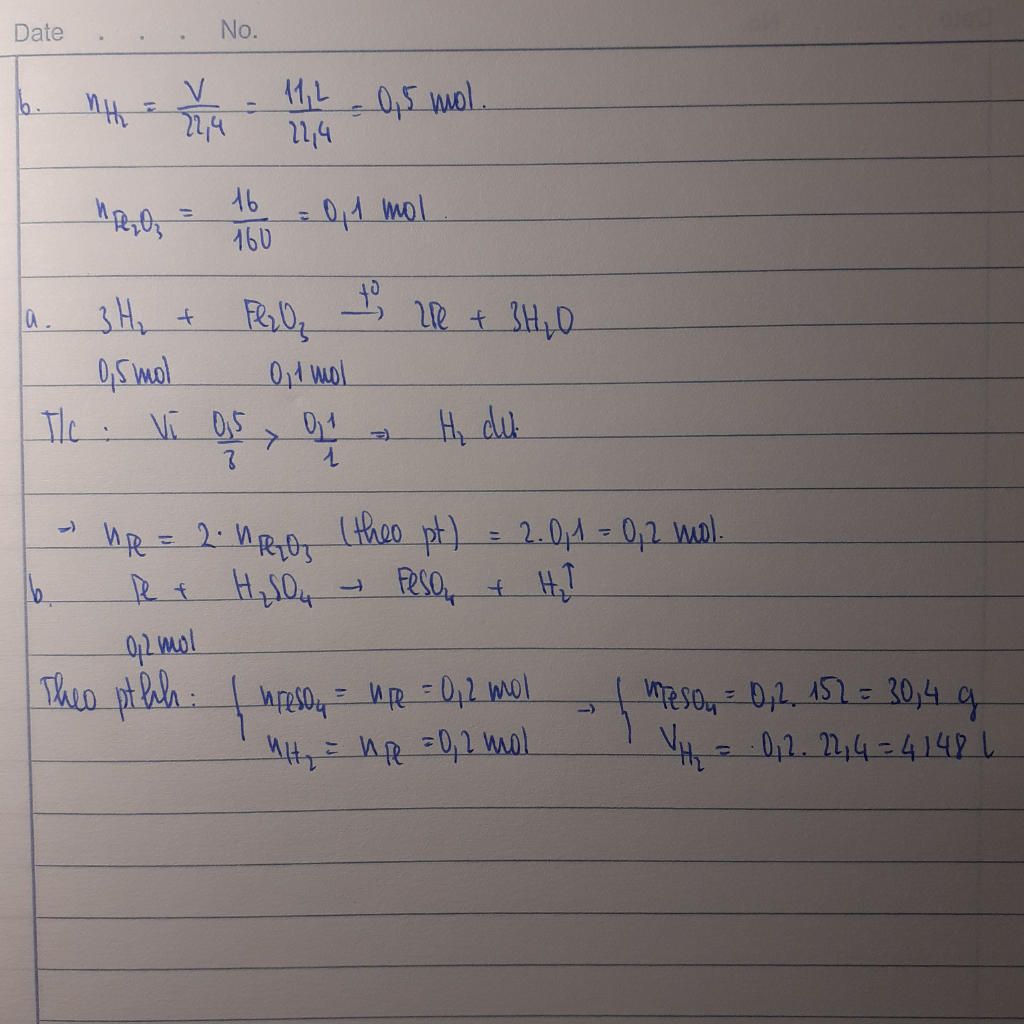 Date . . . No.
b. n_H₂ = V/22,4 = 11,2/22,4 = 0,5 mol.
n_Fe₂O₃ = 16/160 = 0,1 mol.
a. 3H₂ + Fe₂O₃ —t⁰→ 2Fe + 3H₂O
0,5mol 0,1mol
T/c : Vì 0,5/3 > 0,1/1 ⇒ H₂ dư.
→ n_Fe = 2. n_Fe₂O₃ (theo pt) = 2.0,1 = 0,2 mol.
b. Fe + H₂SO₄ → FeSO₄ + H₂↑
0,2mol
Theo pthh: { n_FeSO₄ = n_Fe = 0,2 mol → { m_FeSO₄ = 0,2. 152 = 30,4 g
n_H₂ = n_Fe = 0,2 mol V_H₂ = 0,2. 22,4 = 4,48 l